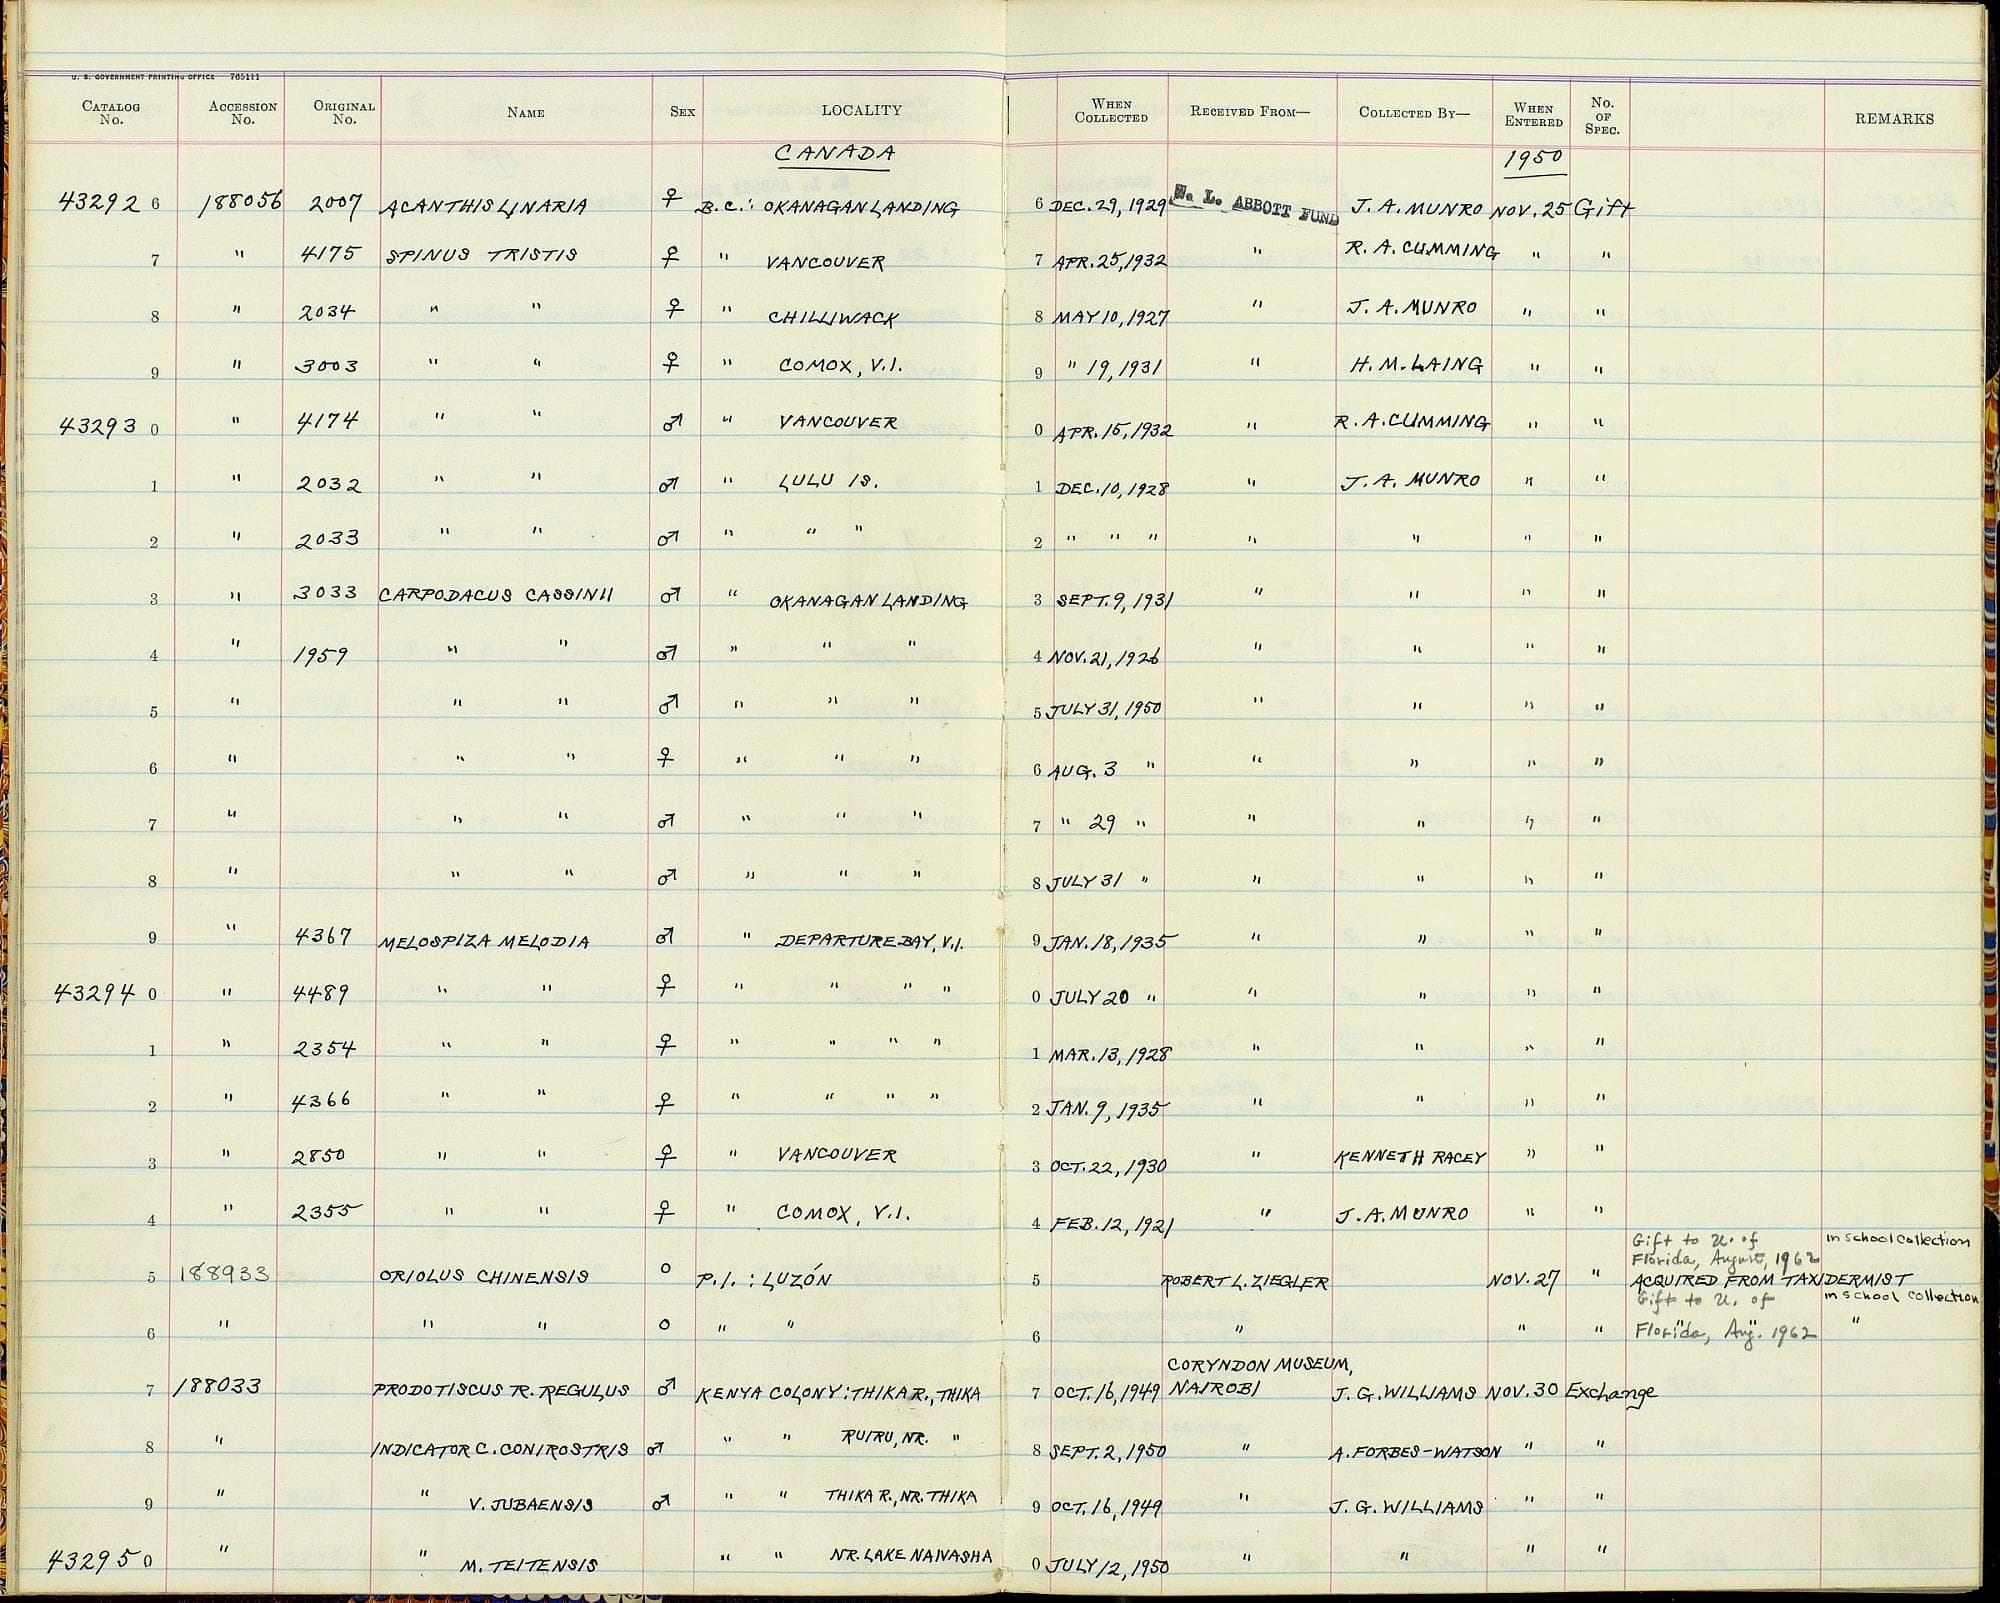 U. S. GOVERNMENT PRINTING OFFICE 765111
CATALOG No. ACCESSION No. ORIGINAL No. NAME SEX LOCALITY WHEN COLLECTED RECEIVED FROM— COLLECTED BY— WHEN ENTERED No. OF SPEC. REMARKS
CANADA 1950
43292 6 188056 2007 ACANTHIS LINARIA ♀ B.C.: OKANAGAN LANDING 6 DEC. 29, 1929 W. L. ABBOTT FUND J. A. MUNRO NOV. 25 Gift
7 " 4175 SPINUS TRISTIS ♀ " VANCOUVER 7 APR. 25, 1932 " R. A. CUMMING " "
8 " 2034 " " ♀ " CHILLIWACK 8 MAY 10, 1927 " J. A. MUNRO " "
9 " 3003 " " ♀ " COMOX, V.I. 9 " 19, 1931 " H. M. LAING " "
43293 0 " 4174 " " ♂ " VANCOUVER 0 APR. 15, 1932 " R. A. CUMMING " "
1 " 2032 " " ♂ " LULU IS. 1 DEC. 10, 1928 " J. A. MUNRO " "
2 " 2033 " " ♂ " " " 2 " " " " " " "
3 " 3033 CARPODACUS CASSINII ♂ " OKANAGAN LANDING 3 SEPT. 9, 1931 " " " "
4 " 1959 " " ♂ " " " 4 NOV. 21, 1926 " " " "
5 " " " ♂ " " " 5 JULY 31, 1950 " " " "
6 " " " ♀ " " " 6 AUG. 3 " " " " "
7 " " " ♂ " " " 7 " 29 " " " " "
8 " " " ♂ " " " 8 JULY 31 " " " " "
9 " 4367 MELOSPIZA MELODIA ♂ " DEPARTURE BAY, V.I. 9 JAN. 18, 1935 " " " "
43294 0 " 4489 " " ♀ " " " " 0 JULY 20 " " " " "
1 " 2354 " " ♀ " " " " 1 MAR. 13, 1928 " " " "
2 " 4366 " " ♀ " " " " 2 JAN. 9, 1935 " " " "
3 " 2850 " " ♀ " VANCOUVER 3 OCT. 22, 1930 " KENNETH RACEY " "
4 " 2355 " " ♀ " COMOX, V.I. 4 FEB. 12, 1921 " J. A. MUNRO " "
Gift to U. of in school collection
Florida, August, 1962
5 188933 ORIOLUS CHINENSIS O P.I.: LUZÓN 5 ROBERT L. ZIEGLER NOV. 27 " ACQUIRED FROM TAXIDERMIST
Gift to U. of in school collection
6 " " " O " " 6 " " " Florida, Aug. 1962 " " "
CORYNDON MUSEUM,
7 188033 PRODOTISCUS R. REGULUS ♂ KENYA COLONY: THIKA R., THIKA 7 OCT. 16, 1949 NAIROBI J. G. WILLIAMS NOV. 30 Exchange
8 " INDICATOR C. CONIROSTRIS ♂ " " RUIRU, NR. " 8 SEPT. 2, 1950 " A. FORBES-WATSON " "
9 " " V. JUBAENSIS ♂ " " THIKA R., NR. THIKA 9 OCT. 16, 1949 " J. G. WILLIAMS " "
43295 0 " " M. TEITENSIS " " NR. LAKE NAIVASHA 0 JULY 12, 1950 " " " "